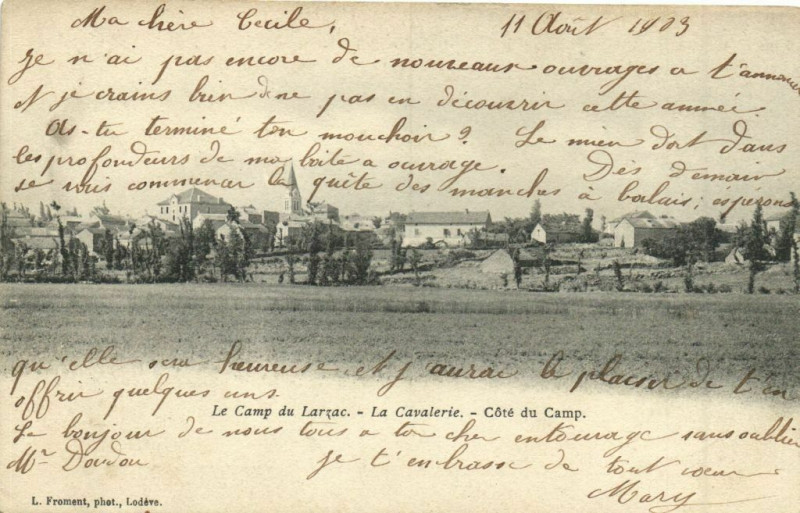 Ma chère Cecile, 11 Août 1903
Je n'ai pas encore de nouveaux ouvrages a t'annoncer
et je crains bien de ne pas en découvrir cette année.
As-tu terminé ton mouchoir ? Le mien dort dans
les profondeurs de ma boîte a ouvrage. Dès demain
je vais commencer la quête des manches à balais ; espérons
qu'elle sera heureuse et j'aurai le plaisir de t'en
offrir quelques uns.
Le Camp du Larzac. - La Cavalerie. - Côté du Camp.
Le bonjour de nous tous a ton cher entourage sans oublier
Mr Doudou je t'embrasse de tout cœur
Mary
L. Froment, phot., Lodève.